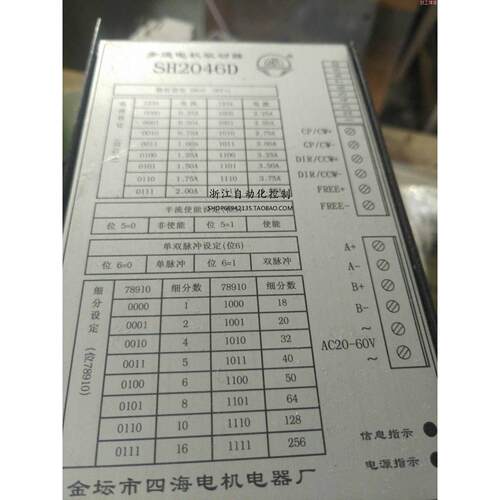 步进电机驱动器
SH2046D
1234 电流 1234 电流
0000 0.25A 1000 2.25A
0001 0.50A 1001 2.50A
0010 0.75A 1010 2.75A
0011 1.00A 1011 3.00A
0100 1.25A 1100 3.25A
0101 1.50A 1101 3.50A
0110 1.75A 1110 3.75A
0111 2.00A
CP/CW+
CP/CW-
DIR/CCW+
DIR/CCW-
FREE+
FREE-
浙江自动化控制
SHOP68942135.TAOBAO.COM
位 5=0 非使能 位 5=1 使能
单双脉冲设定(位6)
位 6=0 单脉冲 位 6=1 双脉冲
细分设定(位78910)
78910 细分数 78910 细分数
0000 1 1000 18
0001 2 1001 20
0010 4 1010 32
0011 5 1011 40
0100 6 1100 50
0101 8 1101 64
0110 10 1110 128
0111 16 1111 256
A+
A-
B+
B-
~
AC20-60V
~
信息指示
电源指示
金坛市四海电机电器厂